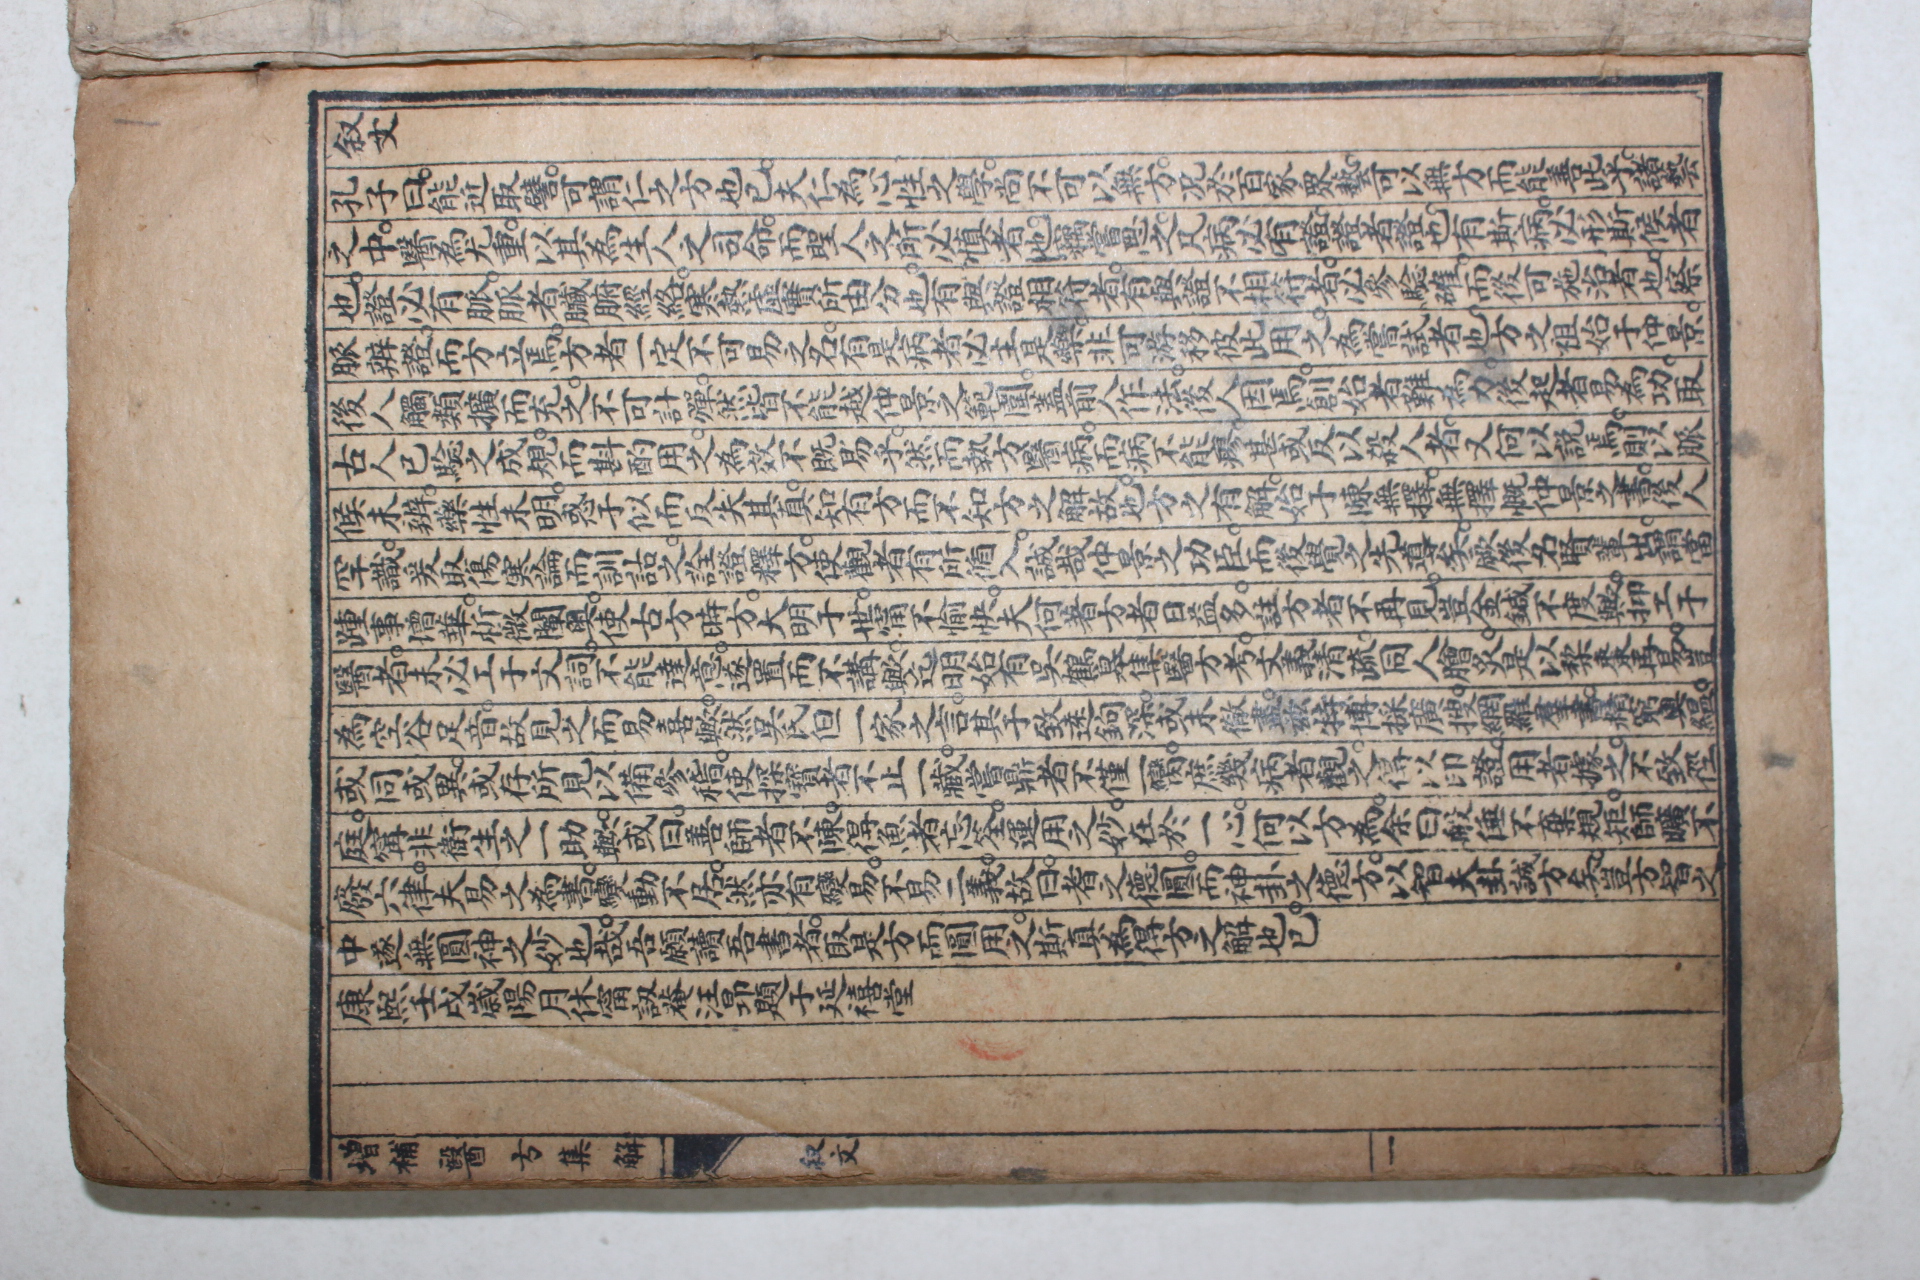 叙文
孔子曰能近取譬可謂仁之方也已夫仁為心性之學尚不可以無方况於百家眾藝可以無方而能善此乎諸藝
之中醫為尤重以其為生人之司命而聖人之所必慎者也竊嘗思之凡病必有證證者證也有斯病必形斯候者
也證必有脈脈者臟腑經絡寒熱虛實所由分也有與證相符者有與證不相符者必參驗確而後可施治者也察
脈辨證而方立焉方者一定不可易之名有是病者必主是藥非可游移彼此用之為嘗試者也方之祖始于仲景
後人觸類擴而充之不可計殫然皆不能越仲景之範圍蓋前人作法後人因焉創始者難為力後起者易為功取
古人已驗之成規而斟酌用之為效不既易乎然而執方醫病而病不能瘳甚或反以殺人者又何以説焉則以脈
候未辨藥性未明惑于似而反失其真知有方而不知方之解故也方之有解始于陳無擇無擇慨仲景之書後人
罕識爰取傷寒論而訓詁之詮證釋方使觀者有所循入誠哉仲景之功臣而後覺之先導矣厥後名賢輩出謂當
踵事增華析微闡奧使古方時方大明于世甯不愉快夫何著方者日益多註方者不再見豈金鍼不度歟抑工于
醫者未必工于文詞不能達意遂置而不講歟迄明始有吳鶴皋集醫方考文義清疏同人膾炙是以梨棗再易豈
為空谷足音故見之而易喜歟然吳氏但一家之言其于致遠鉤深或未徹盡茲特博採廣搜網羅羣書精窮奧蘊
或同或異或存所見以備參稽使探寶者不止一藏嘗鼎者不僅一臠庶幾病者觀之得以印證用者據之不致徑
庭甯非衛生之一助歟或曰善師者不陳得魚者忘筌運用之妙在於一心何以方為余曰般倕不棄規矩師曠不
廢六律夫易之為書變動不居然亦有變易不易二義故曰蓍之德圓而神卦之德方以智夫卦誠方矣豈方智之
中遂無圓神之妙也哉吾願讀吾書者取是方而圓用之斯真為得方之解也已
康熙壬戌歲陽月休甯訒菴汪昂題于延禧堂
增補醫方集解 叙文 一